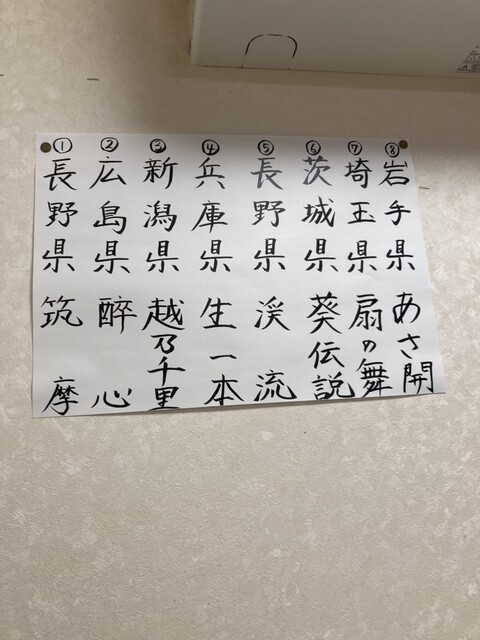 ①長野県 筑摩
②広島県 醉心
③新潟県 越乃千里
④兵庫県 生一本
⑤長野県 渓流
⑥茨城県 葵伝説
⑦埼玉県 扇の舞
⑧岩手県 あさ開